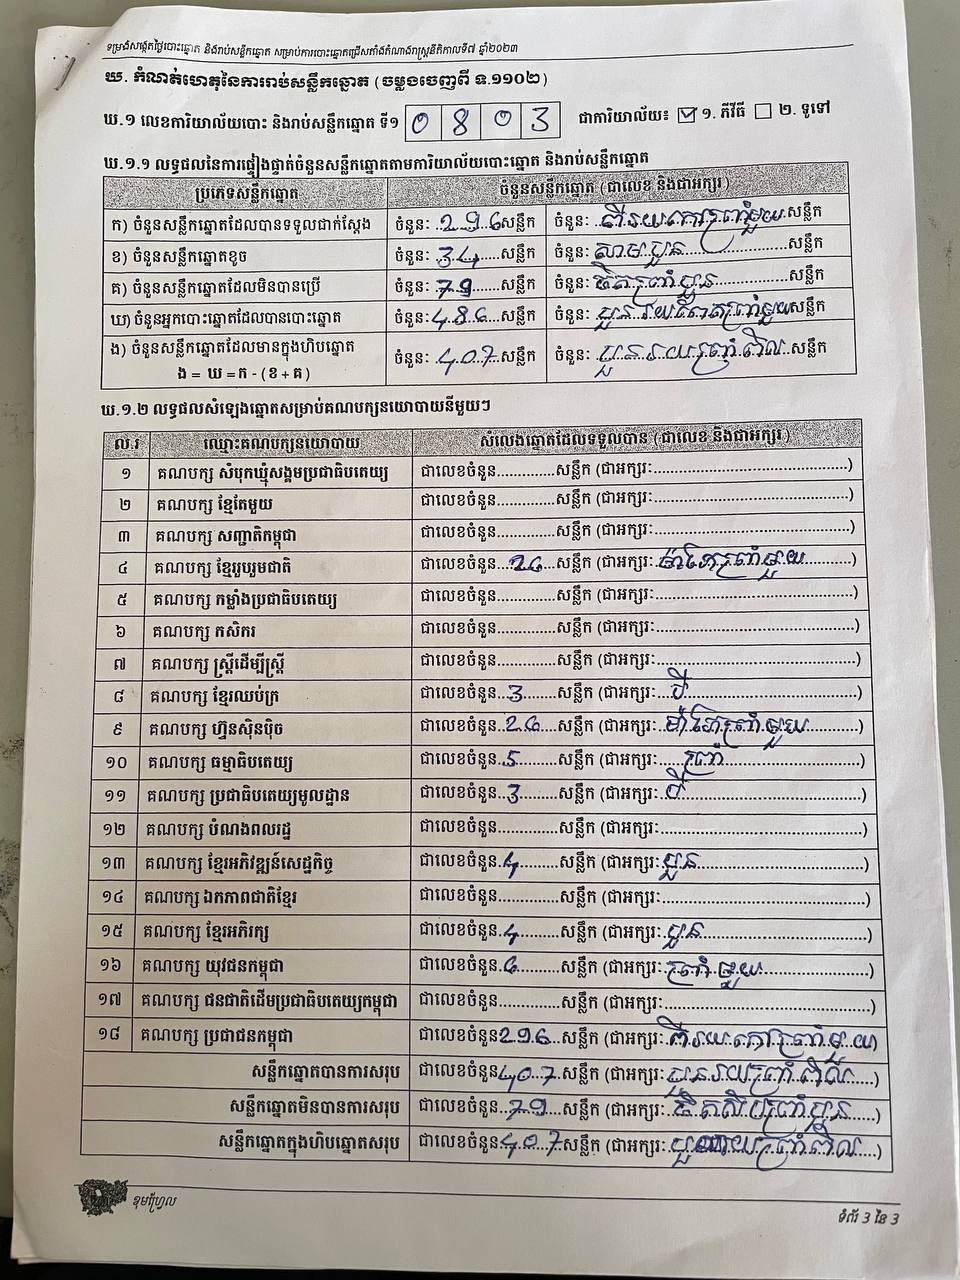 ទម្រង់សង្កេតថ្ងៃបោះឆ្នោត និងរាប់សន្លឹកឆ្នោត សម្រាប់ការបោះឆ្នោតជ្រើសតាំងតំណាងរាស្ត្រនីតិកាលទី៧ ឆ្នាំ២០២៣
ឃ. កំណត់ហេតុនៃការរាប់សន្លឹកឆ្នោត (ចម្លងចេញពី ទ.១១០២)
ឃ.១ លេខការិយាល័យបោះ និងរាប់សន្លឹកឆ្នោត ទី១ 0 8 0 3 ជាការិយាល័យ៖ ☑ ១. ភីវីធី ☐ ២. ទូទៅ
ឃ.១.១ លទ្ធផលនៃការផ្ទៀងផ្ទាត់ចំនួនសន្លឹកឆ្នោតតាមការិយាល័យបោះឆ្នោត និងរាប់សន្លឹកឆ្នោត
ប្រភេទសន្លឹកឆ្នោត ចំនួនសន្លឹកឆ្នោត (ជាលេខ និងជាអក្សរ)
ក) ចំនួនសន្លឹកឆ្នោតដែលបានទទួលជាក់ស្តែង ចំនួន: 296 សន្លឹក ចំនួន: ពីរយកៅប្រាំមួយ សន្លឹក
ខ) ចំនួនសន្លឹកឆ្នោតខូច ចំនួន: 34 សន្លឹក ចំនួន: សាមបួន សន្លឹក
គ) ចំនួនសន្លឹកឆ្នោតដែលមិនបានប្រើ ចំនួន: 79 សន្លឹក ចំនួន: ចិតប្រាំបួន សន្លឹក
ឃ) ចំនួនអ្នកបោះឆ្នោតដែលបានបោះឆ្នោត ចំនួន: 486 សន្លឹក ចំនួន: សន្លឹក
ង) ចំនួនសន្លឹកឆ្នោតដែលមានក្នុងហិបឆ្នោត ចំនួន: 407 សន្លឹក ចំនួន: បួនរយប្រាំពីល សន្លឹក
ង = ឃ =ក - (ខ + គ)
ឃ.១.២ លទ្ធផលសំឡេងឆ្នោតសម្រាប់គណបក្សនយោបាយនីមួយៗ
ល.រ ឈ្មោះគណបក្សនយោបាយ សំលេងឆ្នោតដែលទទួលបាន (ជាលេខ និងជាអក្សរ)
១ គណបក្ស សំបុកឃ្មុំសង្គមប្រជាធិបតេយ្យ ជាលេខចំនួន............សន្លឹក (ជាអក្សរ:............)
២ គណបក្ស ខ្មែតែមួយ ជាលេខចំនួន............សន្លឹក (ជាអក្សរ:............)
៣ គណបក្ស សញ្ជាតិកម្ពុជា ជាលេខចំនួន............សន្លឹក (ជាអក្សរ:............)
៤ គណបក្ស ខ្មែររួបរួមជាតិ ជាលេខចំនួន..26....សន្លឹក (ជាអក្សរ: ម៉ាភៃប្រាំមួយ)
៥ គណបក្ស កម្លាំងប្រជាធិបតេយ្យ ជាលេខចំនួន............សន្លឹក (ជាអក្សរ:............)
៦ គណបក្ស កសិករ ជាលេខចំនួន............សន្លឹក (ជាអក្សរ:............)
៧ គណបក្ស ស្ត្រីដើម្បីស្ត្រី ជាលេខចំនួន............សន្លឹក (ជាអក្សរ:............)
៨ គណបក្ស ខ្មែរឈប់ក្រ ជាលេខចំនួន..3....សន្លឹក (ជាអក្សរ: បី)
៩ គណបក្ស ហ៊្វុនស៊ិនប៉ិច ជាលេខចំនួន..26....សន្លឹក (ជាអក្សរ: ម៉ាភៃប្រាំមួយ)
១០ គណបក្ស ធម្មាធិបតេយ្យ ជាលេខចំនួន..5....សន្លឹក (ជាអក្សរ: ប្រាំ)
១១ គណបក្ស ប្រជាធិបតេយ្យមូលដ្ឋាន ជាលេខចំនួន..3....សន្លឹក (ជាអក្សរ: បី)
១២ គណបក្ស បំណងពលរដ្ឋ ជាលេខចំនួន............សន្លឹក (ជាអក្សរ:............)
១៣ គណបក្ស ខ្មែរអភិវឌ្ឍន៍សេដ្ឋកិច្ច ជាលេខចំនួន..4....សន្លឹក (ជាអក្សរ: បួន)
១៤ គណបក្ស ឯកភាពជាតិខ្មែរ ជាលេខចំនួន............សន្លឹក (ជាអក្សរ:............)
១៥ គណបក្ស ខ្មែរអភិរក្ស ជាលេខចំនួន..4....សន្លឹក (ជាអក្សរ: បួន)
១៦ គណបក្ស យុវជនកម្ពុជា ជាលេខចំនួន..6....សន្លឹក (ជាអក្សរ: ប្រាំមួយ)
១៧ គណបក្ស ជនជាតិដើមប្រជាធិបតេយ្យកម្ពុជា ជាលេខចំនួន............សន្លឹក (ជាអក្សរ:............)
១៨ គណបក្ស ប្រជាជនកម្ពុជា ជាលេខចំនួន 296 សន្លឹក (ជាអក្សរ: ពីរយកៅប្រាំមួយ)
សន្លឹកឆ្នោតបានការសរុប ជាលេខចំនួន 407 សន្លឹក (ជាអក្សរ: បួនរយប្រាំពីល)
សន្លឹកឆ្នោតមិនបានការសរុប ជាលេខចំនួន 79 សន្លឹក (ជាអក្សរ: ចិតសិបប្រាំបួន)
សន្លឹកឆ្នោតក្នុងហិបឆ្នោតសរុប ជាលេខចំនួន 407 សន្លឹក (ជាអក្សរ: ប្រាំពីល)
ខុមហ្វ្រែល
ទំព័រ 3 នៃ 3